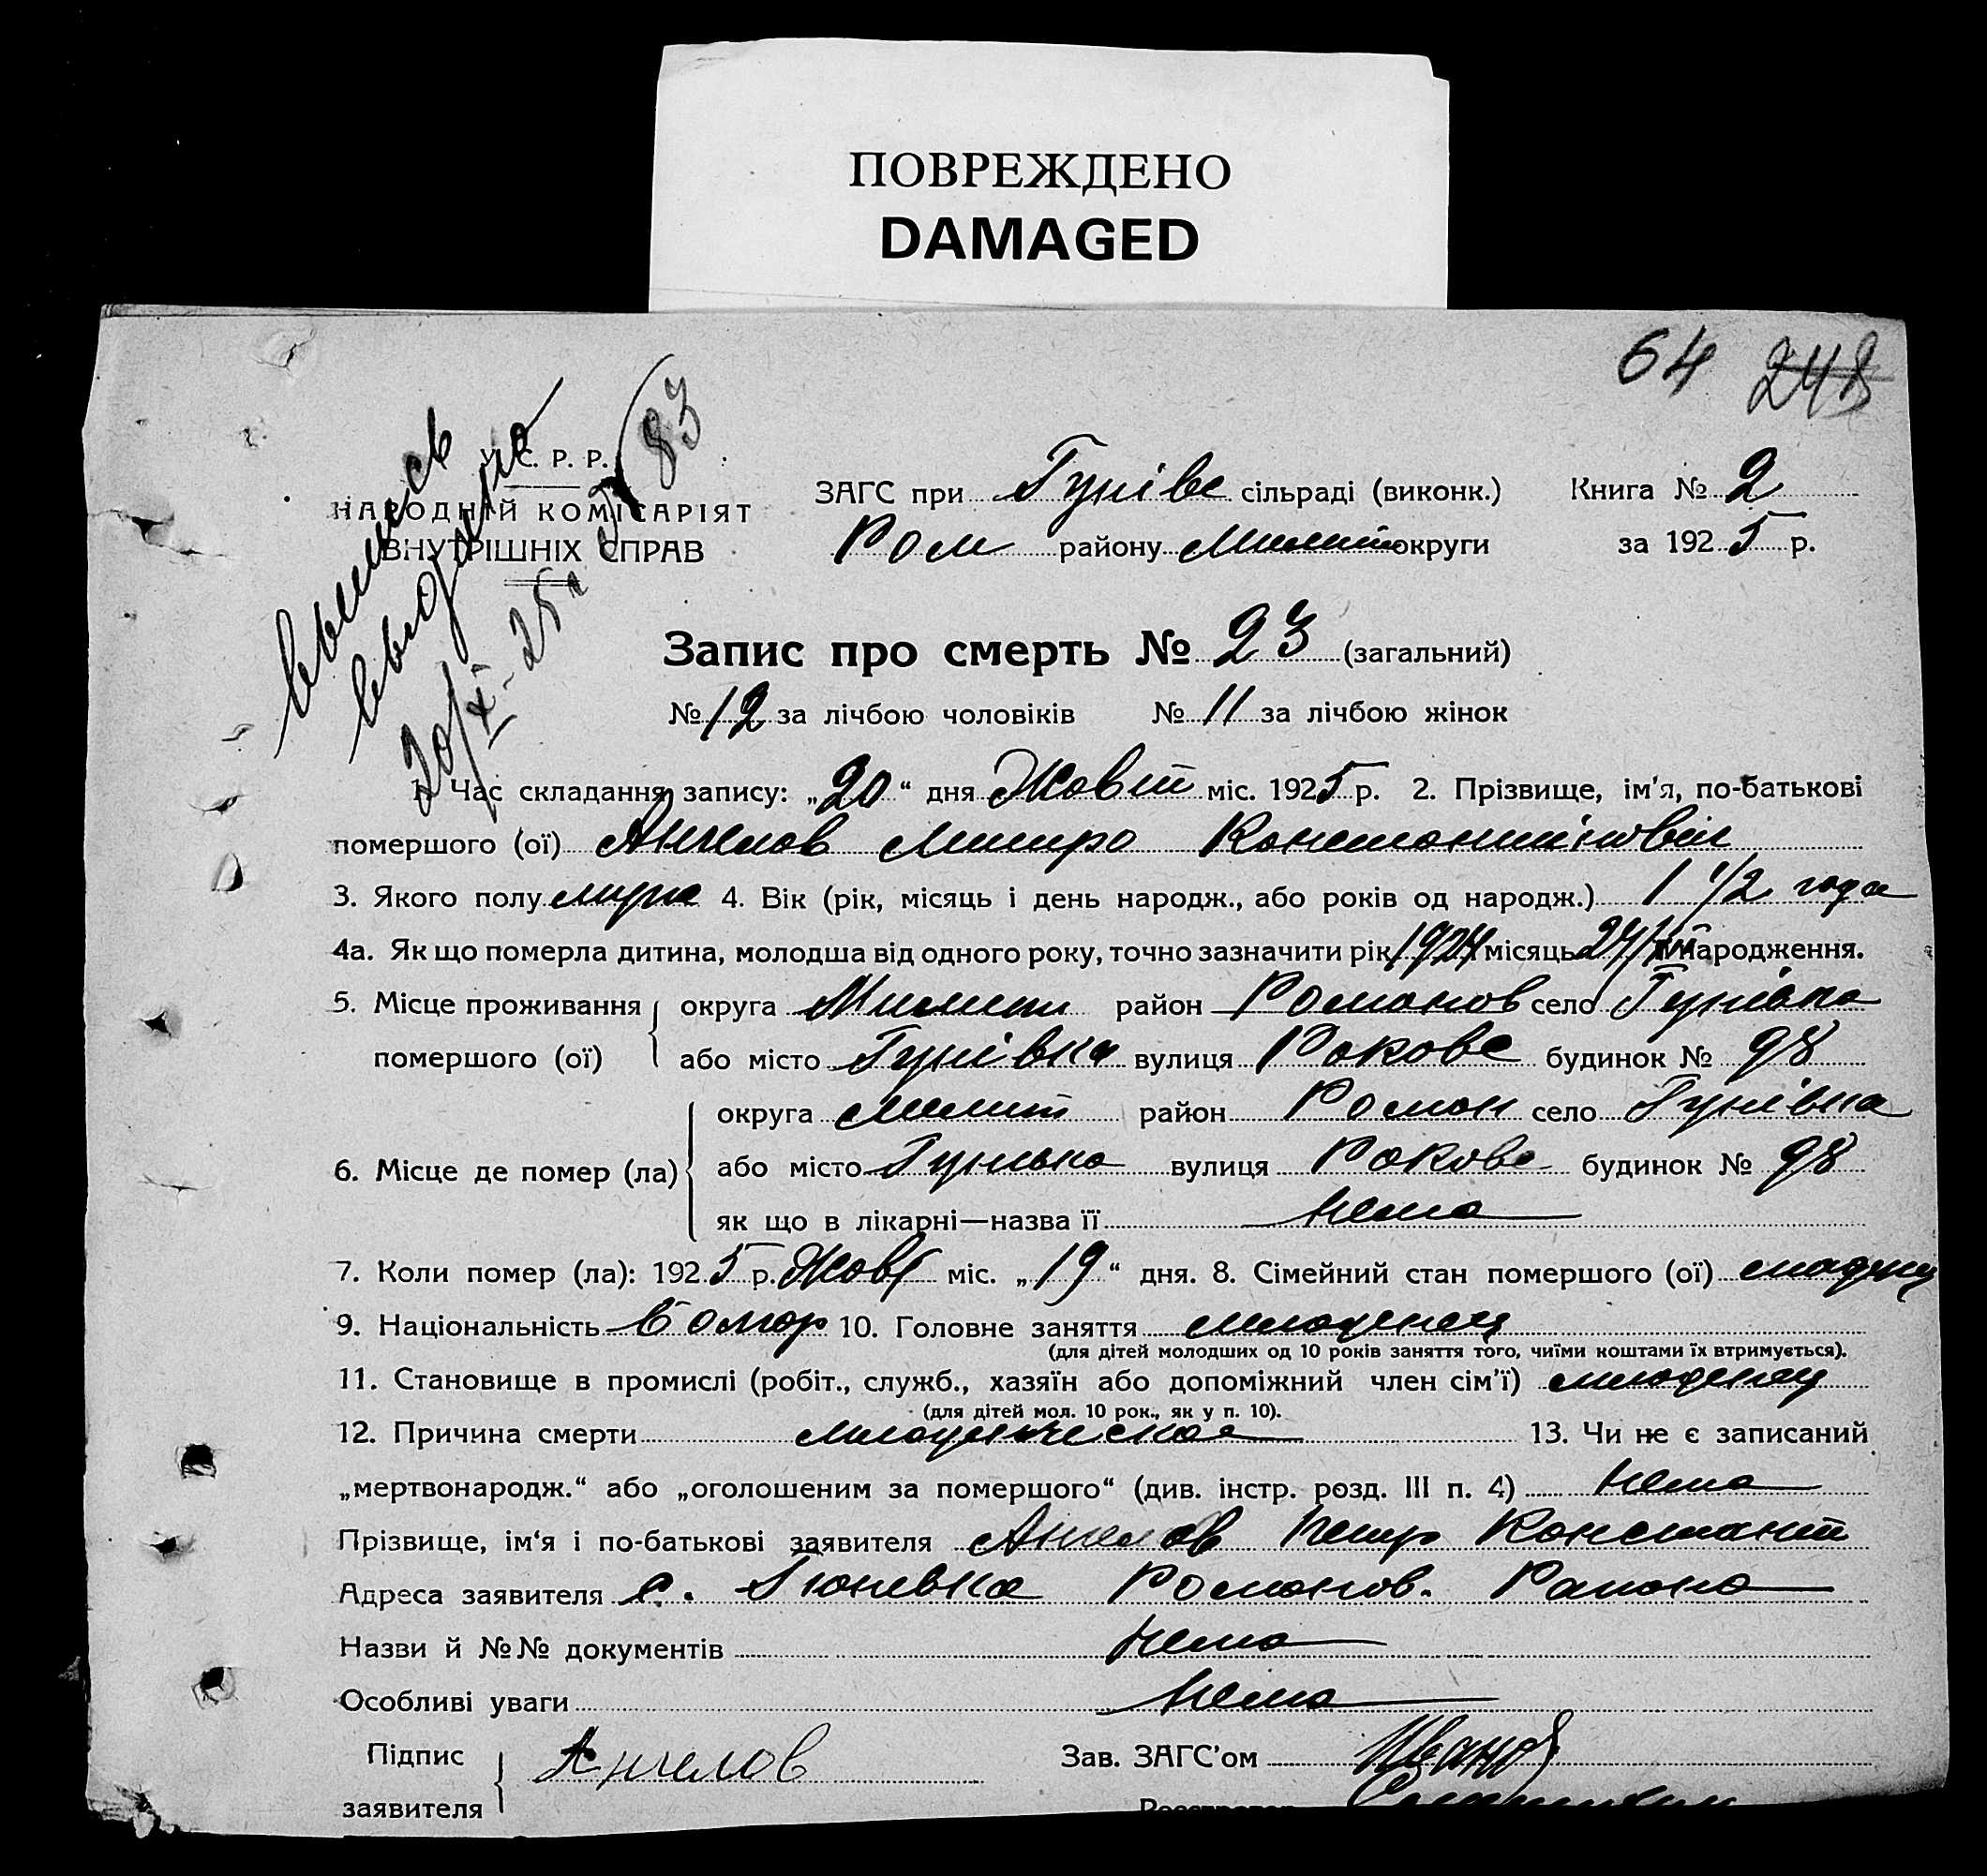 ПОВРЕЖДЕНО
DAMAGED
64 248
У. С. Р. Р.
НАРОДНІЙ КОМІСАРІЯТ
ВНУТРІШНІХ СПРАВ
83
20/X-25
ЗАГС при Гунівс сільраді (виконк.) Книга № 2
Ром району Мелит округи за 1925 р.
Запис про смерть № 23 (загальний)
№ 12 за лічбою чоловіків № 11 за лічбою жінок
1. Час складання запису: „20“ дня Жовт міс. 1925 р. 2. Прізвище, ім'я, по-батькові
помершого (ої) Ангелов Митро Константінович
3. Якого полу муж 4. Вік (рік, місяць і день народж., або років од народж.) 1 1/2 года
4а. Як що померла дитина, молодша від одного року, точно зазначити рік 1924 місяць 24 народження.
5. Місце проживання округа Мелит район Романов село Гунівка
помершого (ої) або місто Гунівка вулиця Рокове будинок № 98
округа Мелит район Роман село Гунівка
6. Місце де помер (ла) або місто Гунівка вулиця Рокове будинок № 98
як що в лікарні—назва її нема
7. Коли помер (ла): 1925 р. Жовт міс. „19“ дня. 8. Сімейний стан помершого (ої)
9. Національність Болгар 10. Головне заняття младенец
(для дітей молодших од 10 років заняття того, чиїми коштами їх втримується).
11. Становище в промислі (робіт., служб., хазяїн або допоміжний член сім'ї) младенец
(для дітей мол. 10 рок., як у п. 10).
12. Причина смерти младенческая 13. Чи не є записаний
„мертвонародж.“ або „оголошеним за помершого“ (див. інстр. розд. III п. 4) нема
Прізвище, ім'я і по-батькові заявителя Ангелов Петр Константі
Адреса заявителя с. Гюневка Романов. Района
Назви й №№ документів нема
Особливі уваги нема
Підпис Ангелов Зав. ЗАГС'ом Иванов
заявителя